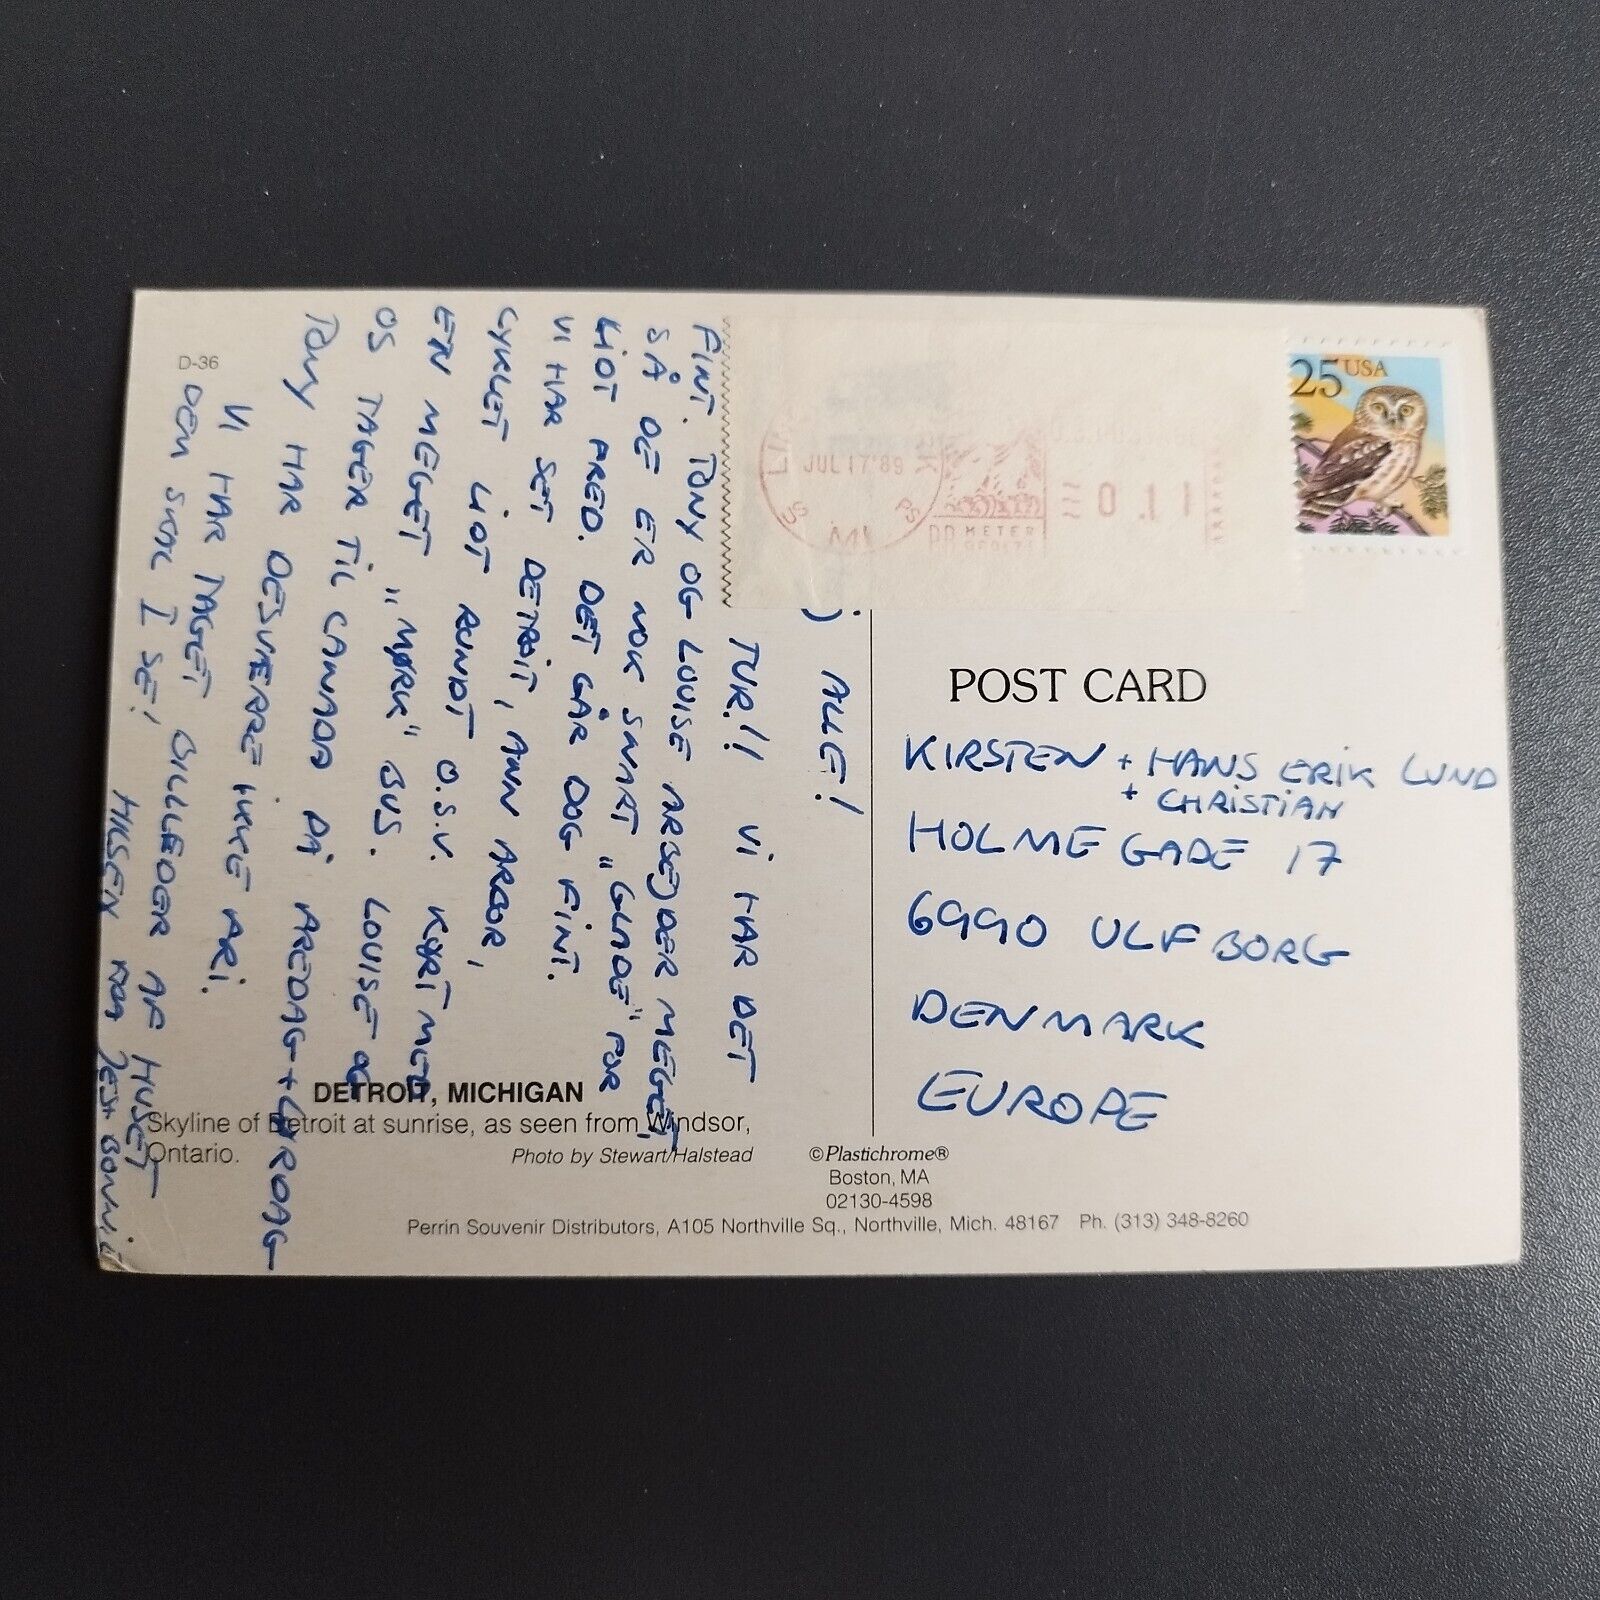 D-36
25 USA
JUL 17 '89
MI
METER
0.11
) ALLE!
TUR!! VI HAR DET
FINT. TONY OG LOUISE ARBEJDER MEGET
SÅ DE ER NOK SNART "GLADE" FOR
LIDT FRED. DET GÅR DOG FINT.
VI HAR SET DETROIT, ANN ARBOR,
CYKLET LIDT RUNDT O.S.V. KØRT MED
EN MEGET "MØRK" BUS. LOUISE OG
OS TAGER TIL CANADA PÅ FREDAG + LØRDAG
TONY HAR DESVÆRRE IKKE FRI.
VI HAR TAGET BILLEDER AF HUSET
DEM SKAL I SE!
HILSEN FRA JES + BONNIE
POST CARD
KIRSTEN + HANS ERIK LUND
+ CHRISTIAN
HOLMEGADE 17
6990 ULFBORG
DENMARK
EUROPE
DETROIT, MICHIGAN
Skyline of Detroit at sunrise, as seen from Windsor,
Ontario.
Photo by Stewart/Halstead
©Plastichrome®
Boston, MA
02130-4598
Perrin Souvenir Distributors, A105 Northville Sq., Northville, Mich. 48167 Ph. (313) 348-8260